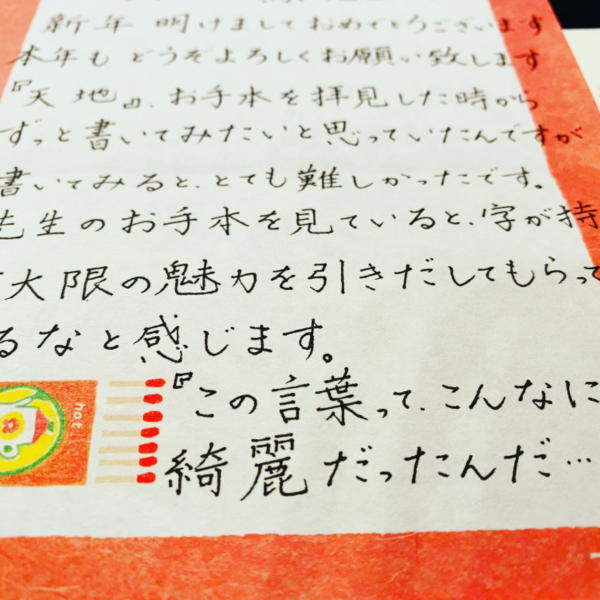 新年 明けましておめでとうございます
本年も どうぞよろしくお願い致します
『天地』、お手本を拝見した時から
ずっと書いてみたいと思っていたんですが
書いてみると、とても難しかったです。
先生のお手本を見ていると、字が持
大限の魅力を引きだしてもらって
るなと感じます。
『この言葉って、こんなに
綺麗だったんだ…
hot